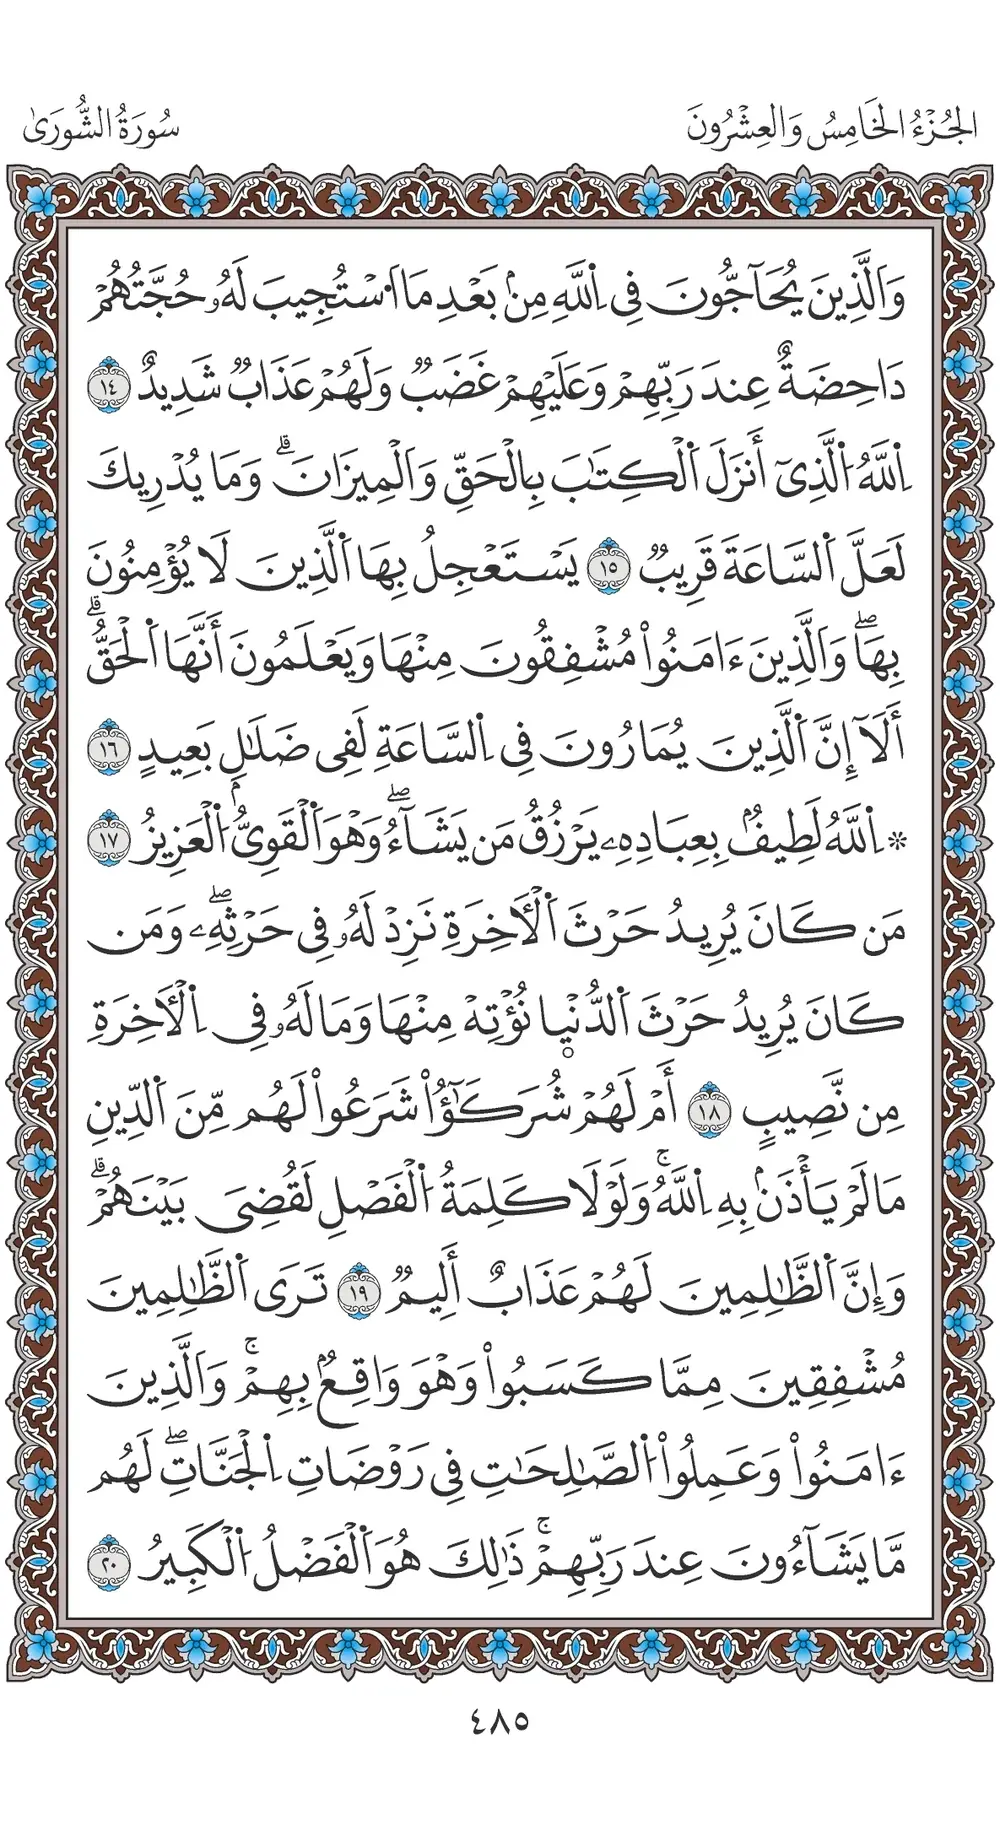 الجُزْءُ الخَامِسُ وَالعِشْرُونَ
سُورَةُ الشُّورَىٰ
وَالَّذِينَ يُحَآجُّونَ فِي اِ۬للَّهِ مِنۢ بَعْدِ مَا اَ۟سْتُجِيبَ لَهُۥ حُجَّتُهُمْ
دَاحِضَةٌ عِندَ رَبِّهِمْ وَعَلَيْهِمْ غَضَبٌ وَلَهُمْ عَذَابٌ شَدِيدٌ ١٤
اِ۬للَّهُ اُ۬لَّذِيٓ أَنزَلَ اَ۬لْكِتَٰبَ بِالْحَقِّ وَالْمِيزَانَۗ وَمَا يُدْرِيكَ
لَعَلَّ اَ۬لسَّاعَةَ قَرِيبٌ ١٥ يَسْتَعْجِلُ بِهَا اَ۬لَّذِينَ لَا يُؤْمِنُونَ
بِهَاۖ وَالَّذِينَ ءَامَنُواْ مُشْفِقُونَ مِنْهَا وَيَعْلَمُونَ أَنَّهَا اَ۬لْحَقُّۗ
أَلَآ إِنَّ اَ۬لَّذِينَ يُمَارُونَ فِي اِ۬لسَّاعَةِ لَفِي ضَلَٰلِۢ بَعِيدٍ ١٦
۞ اِ۬للَّهُ لَطِيفُۢ بِعِبَادِهِۦ يَرْزُقُ مَن يَشَآءُۖ وَهْوَ اَ۬لْقَوِيُّ اُ۬لْعَزِيزُ ١٧
مَن كَانَ يُرِيدُ حَرْثَ اَ۬لْأٓخِرَةِ نَزِدْ لَهُۥ فِي حَرْثِهِۦۖ وَمَن
كَانَ يُرِيدُ حَرْثَ اَ۬لدُّنْي۪ا نُؤْتِهْ مِنْهَا وَمَا لَهُۥ فِي اِ۬لْأٓخِرَةِ
مِن نَّصِيبٍ ١٨ أَمْ لَهُمْ شُرَكَٰٓؤُاْ شَرَعُواْ لَهُم مِّنَ اَ۬لدِّينِ
مَا لَمْ يَأْذَنۢ بِهِ اِ۬للَّهُۚ وَلَوْلَا كَلِمَةُ اُ۬لْفَصْلِ لَقُضِيَ بَيْنَهُمْۗ
وَإِنَّ اَ۬لظَّٰلِمِينَ لَهُمْ عَذَابٌ أَلِيمٌ ١٩ تَرَى اَ۬لظَّٰلِمِينَ
مُشْفِقِينَ مِمَّا كَسَبُواْ وَهْوَ وَاقِعُۢ بِهِمْۚ وَالَّذِينَ
ءَامَنُواْ وَعَمِلُواْ اُ۬لصَّٰلِحَٰتِ فِي رَوْضَاتِ اِ۬لْجَنَّاتِۖ لَهُم
مَّا يَشَآءُونَ عِندَ رَبِّهِمْۚ ذَٰلِكَ هُوَ اَ۬لْفَضْلُ اُ۬لْكَبِيرُ ٢٠
٤٨٥